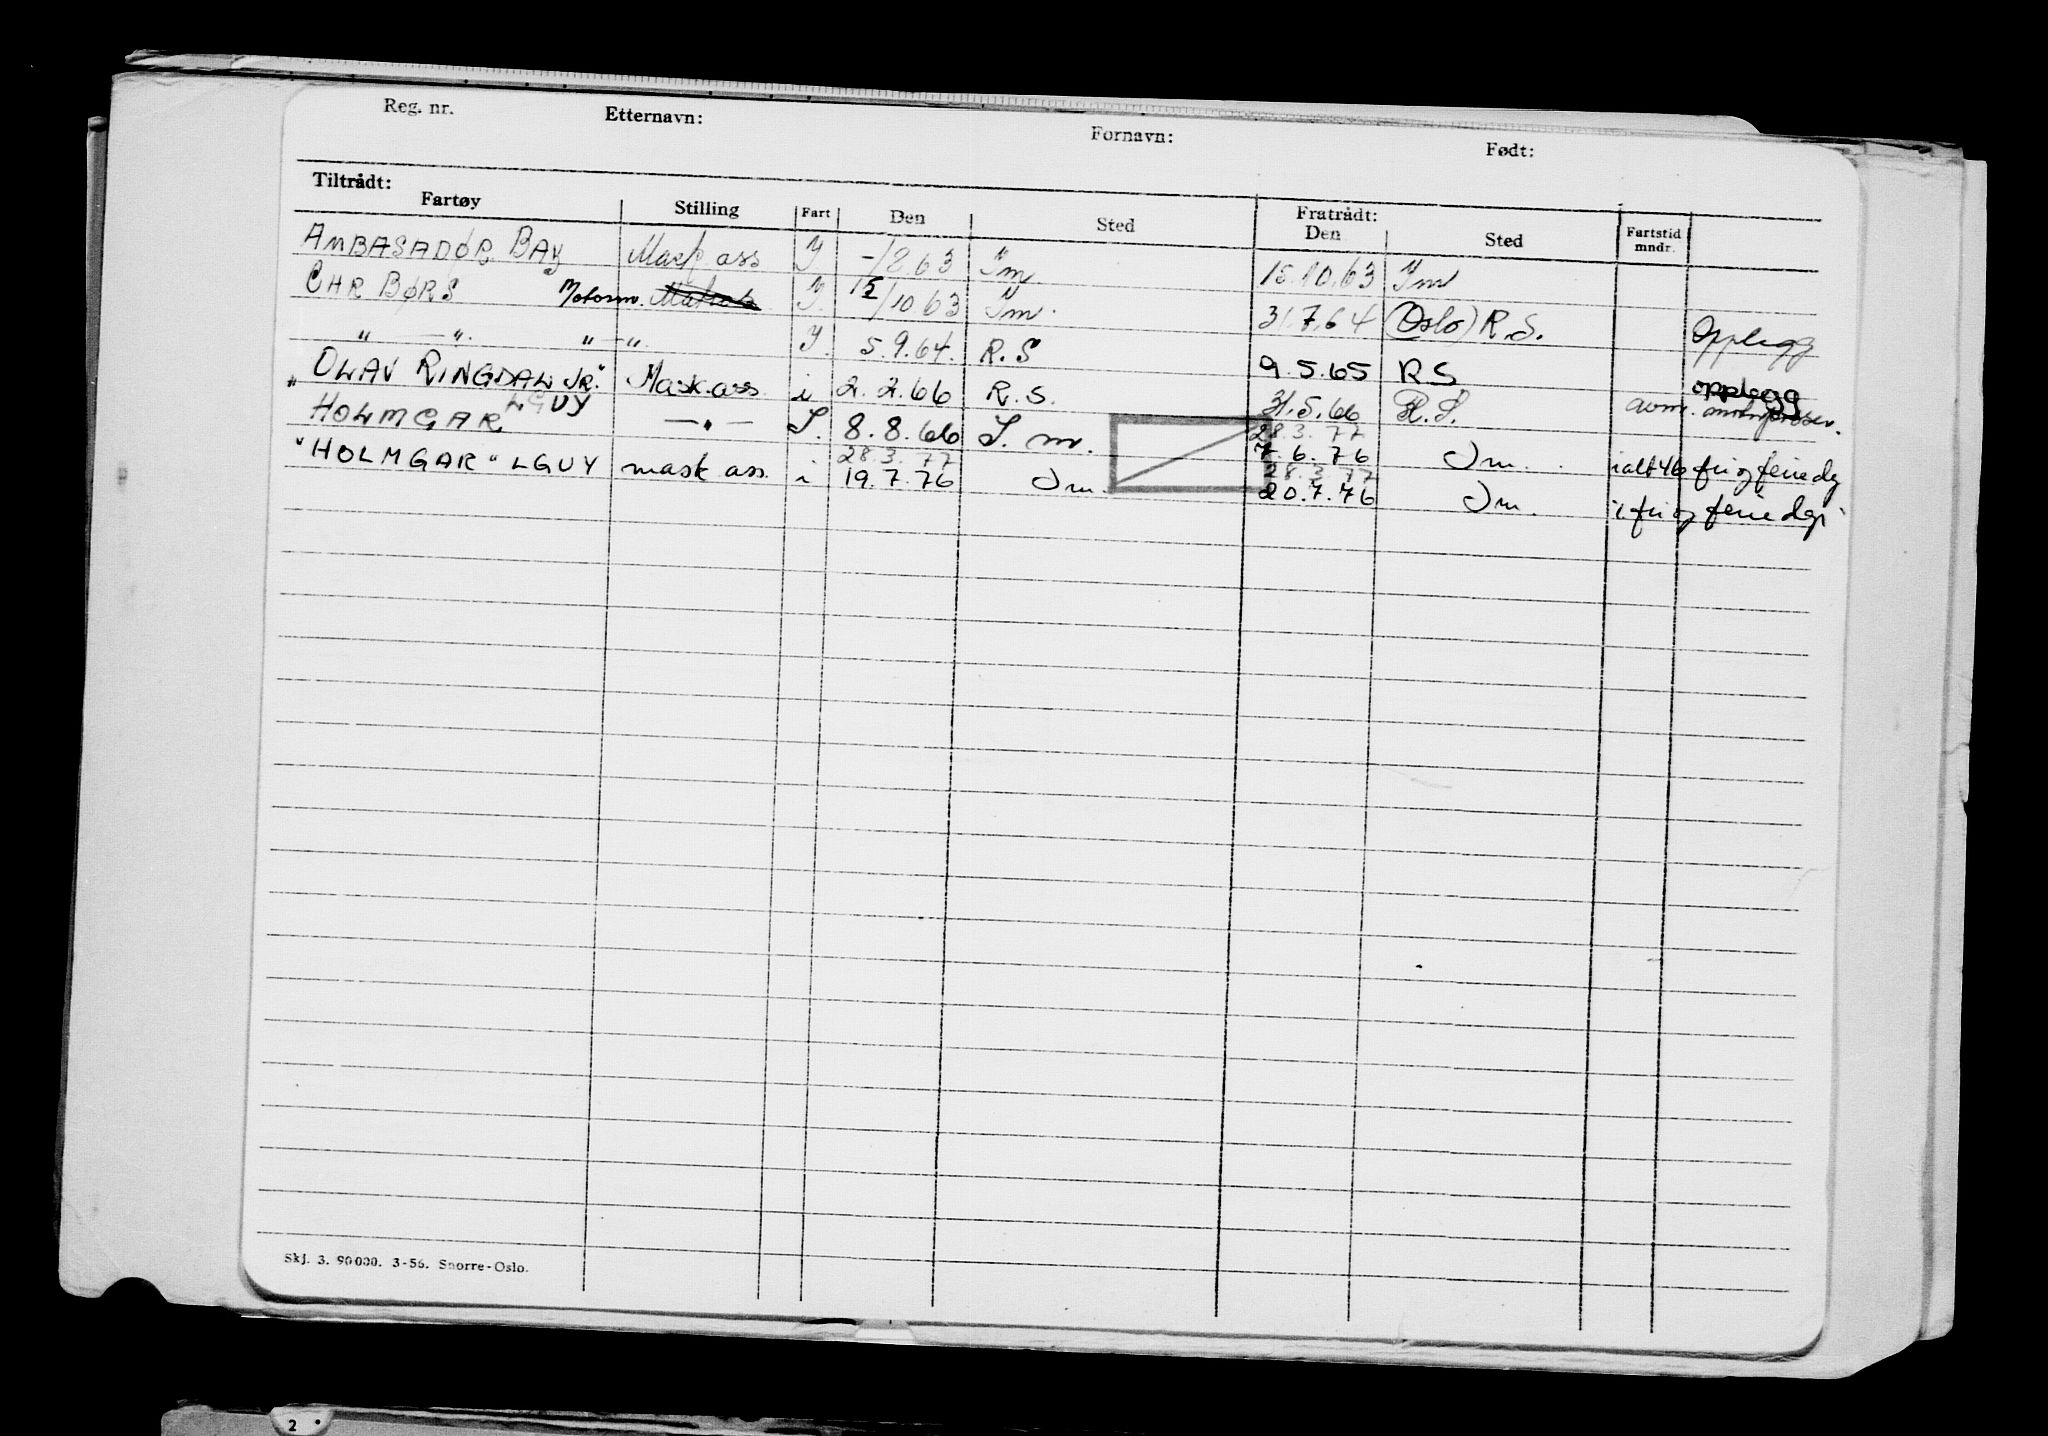 Reg. nr. Etternavn: Fornavn: Født:
Tiltrådt: Fratrådt:
Fartøy Stilling Fart Den Sted Den Sted Fartstid mndr.
AMBASADØR BAY Mask ass Y -/8 63 Ym. 15.10.63 Ym
CHR BØRS Motorm. Y. 15/10 63 Ym. 31.7.64 (Oslo) R.S. Opplegg
" —". " —". Y. 5.9.64. R.S 9.5.65 R S opplegg
"OLAV RINGDAL JR." Mask.ass. i 2.2.66 R.S. 31.5.66 R.S. avm.
HOLMGAR LGUY —"— I. 8.8.66 I. m. 28.3.77 7.6.76 Im. ialt 46 fri og feriedg
"HOLMGAR" LGUY mask ass. i 28.3.77 19.7.76 Im. 28.3.77 20.7.76 Im. i fri og feriedgr
Skj. 3. 90 000. 3-56. Snorre-Oslo.
2